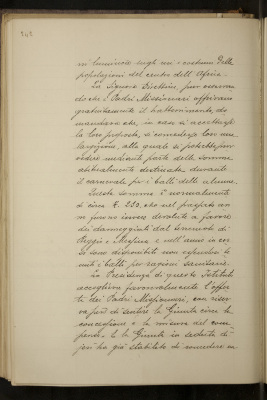 242
ni luminose sugli usi e costumi delle
popolazioni del centro dell'Africa.
La Signora Direttrice, pur osservan
do che i Padri Missionari offrivano
gratuitamente il trattenimento, do
mandava che, in caso si accettasse
la loro proposta, si concedesse loro una
largizione, alla quale si potrebbe prov
vedere mediante parte della somma
abitualmente destinata durante
il carnevale per i balli delle alunne.
Questa somma è normalmente
di circa £. 250, che nel passato an
no furono invece devolute a favore
dei danneggiati dal terremoto di
Reggio e Messina e nell'anno in cor
so sono disponibili non essendosi te
nuti i balli per ragioni sanitarie.
La Presidenza di questo Istituto
accoglieva favorevolmente l'offer
ta dei Padri Missionari, con riser
va però di sentire la Giunta circa la
concessione e la misura del com
penso. E la Giunta in seduta di
jeri ha già stabilito di concedere un